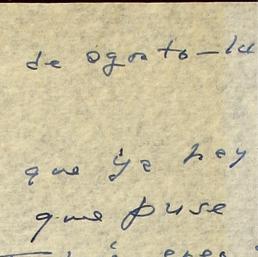 de agosto - lu
que ya hay
que puse